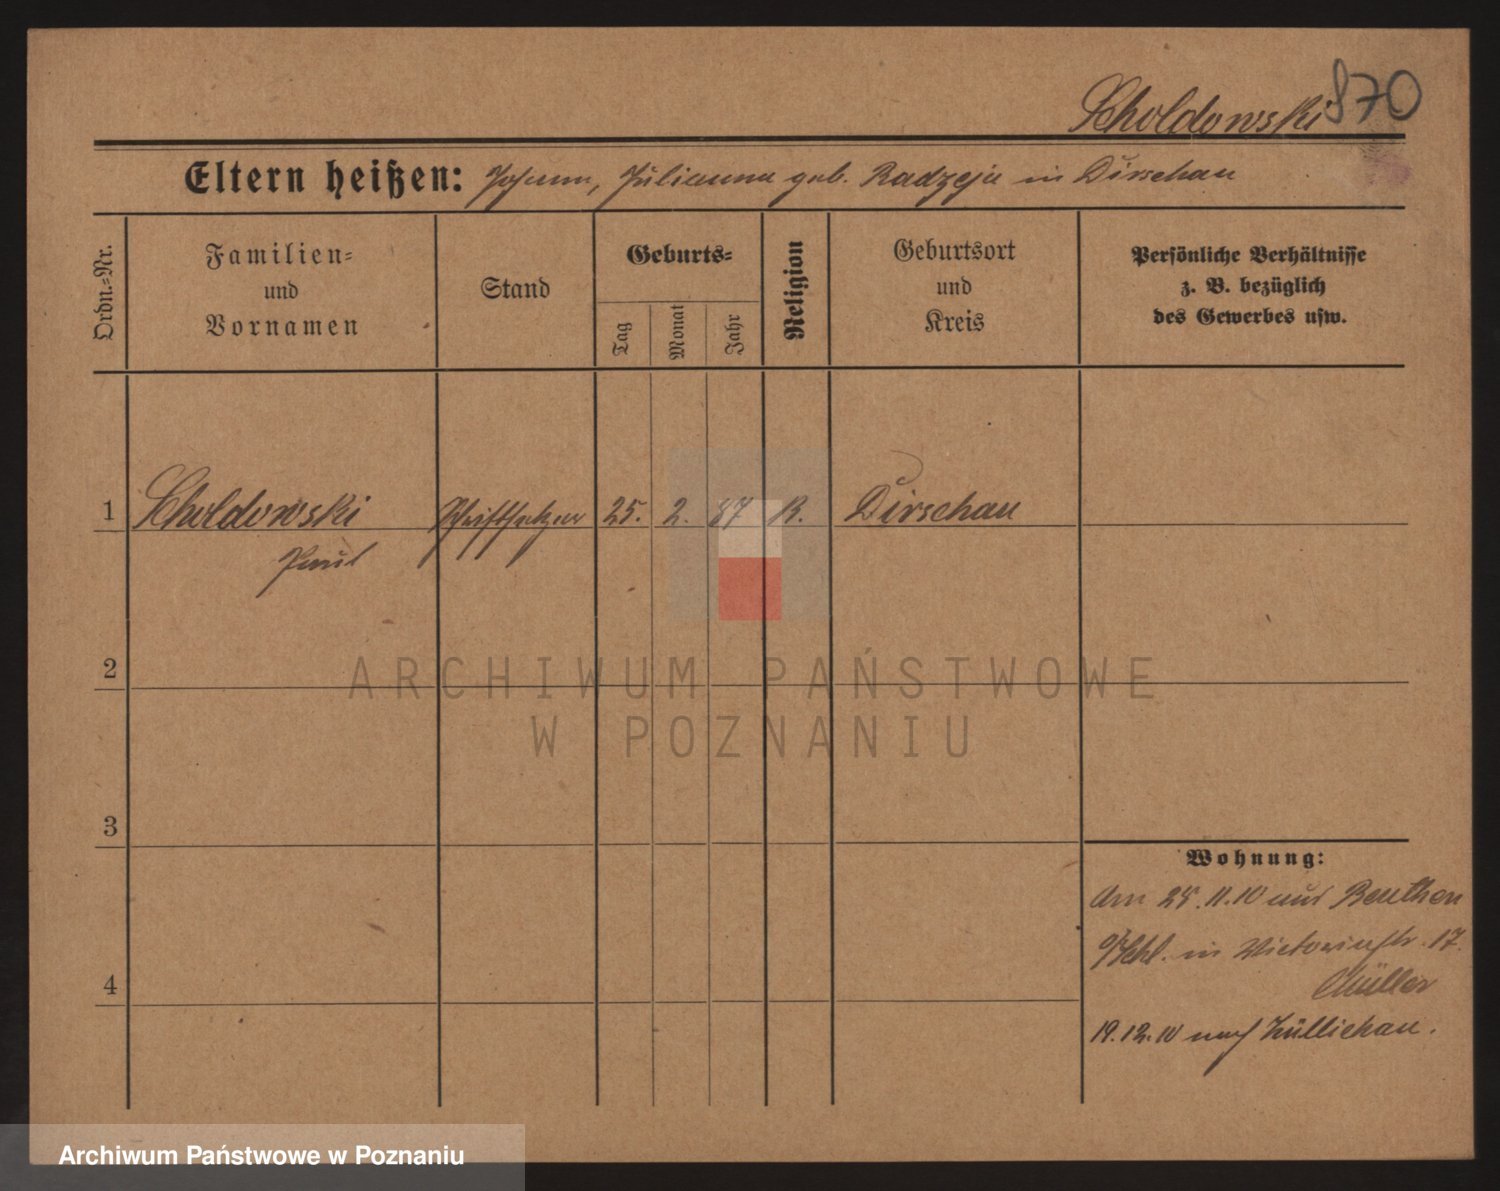 Scholdowski 870
Eltern heißen: Johann, Julianna geb. Radzeja in Dirschau
Ordn.-Nr.
Familien-
und
Vornamen
Stand
Geburts-
Tag
Monat
Jahr
Religion
Geburtsort
und
Kreis
Persönliche Verhältnisse
z. B. bezüglich
des Gewerbes usw.
1 Scholdowski Schriftsetzer 25. 2. 87 R. Dirschau
Paul
2
3
4
Wohnung:
Am 25.11.10 aus Beuthen
O/Schl. in Victoriastr. 17.
Müller
19.12.10 nach Züllichau.
ARCHIWUM PAŃSTWOWE
W POZNANIU
Archiwum Państwowe w Poznaniu